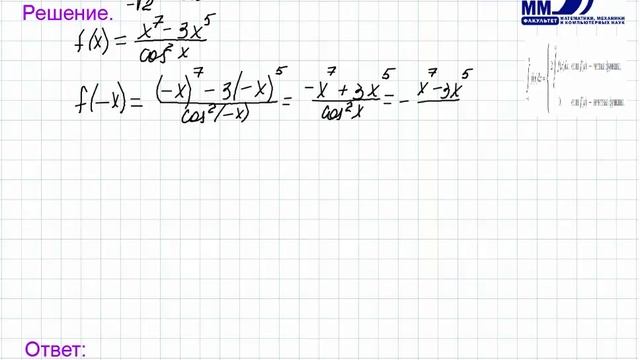 Решение.
-√2
f(x) = (x^7 - 3x^5)/(cos^2 x)
f(-x) = ((-x)^7 - 3(-x)^5)/(cos^2(-x)) = (-x^7 + 3x^5)/(cos^2 x) = - (x^7 - 3x^5)/
ММ
ФАКУЛЬТЕТ МАТЕМАТИКИ, МЕХАНИКИ И КОМПЬЮТЕРНЫХ НАУК
Ответ: